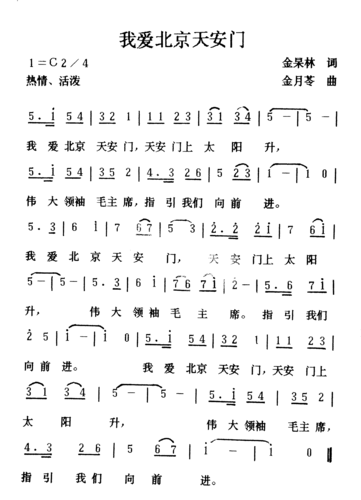 我爱北京天安门
1=C 2/4 金果林 词
热情、活泼 金月苓 曲
5. i 54 | 32 1 | 11 23 | 4 3 | 31 34 | 5 - | 5 - |
我 爱北京 天安 门，天安 门上 太阳 升，
5. i 54 | 32 3 | 5 - | 4. 3 26 | 5 23 | 1 - | 1 - |
伟 大领袖 毛主 席，指引我们 向前 进。
5. 3 | 6 i | 76 67 | 5 - | 6. 3 | 2 i |
我 爱 北 京 天安 门， 天 安 门上 太 阳
5 - | 5 - | 5. 3 | 6 i | 76 7 i | 2 - | 5. 6 7 i |
升， 伟 大 领袖 毛 主 席。 指 引我们
2 5 | i - | i 0 | 5. i 54 | 32 1 | 11 23 | 4 3 |
向前 进。 我 爱北京 天安 门，天安 门上
31 34 | 5 - | 5 - | 5. i 54 | 32 3 | 5 - |
太 阳 升， 伟 大领袖 毛主 席，
4. 3 26 | 5 67 | i - | i 0 ‖
指引 我们 向前 进。